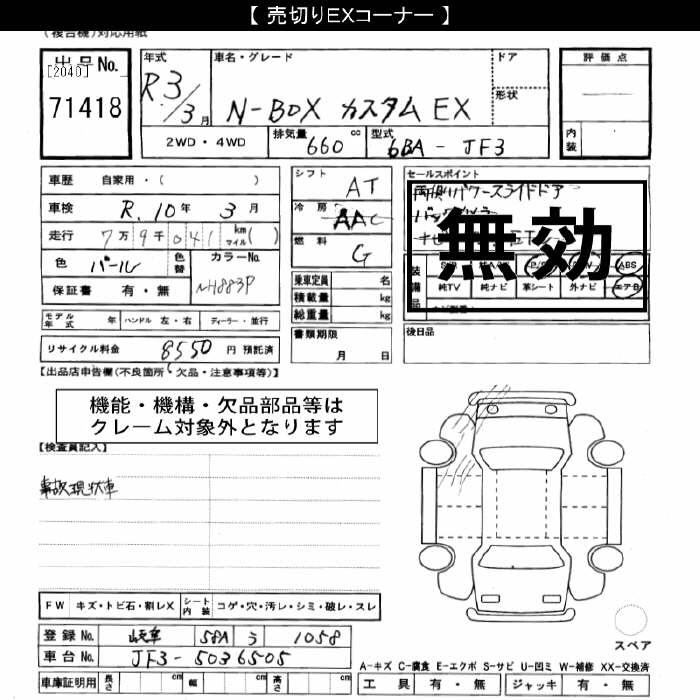 【 売切りEXコーナー 】
(複合機)対応用紙
出品No.
[2040]
71418
年式
R3/3月
車名・グレード
N-BOX カスタム EX
ドア
形状
評価点
内装
2WD・4WD
排気量 660 cc
型式 6BA - JF3
車歴 自家用・( )
車検 R.10年 3月
走行 7万9千041 km マイル( )
色 パール
色替
カラーNo. NH883P
保証書 有・無
モデル年式 年 ハンドル 左・右 ディーラー・並行
リサイクル料金 8550 円 預託済
シフト AT
冷房 AAC
燃料 G
乗車定員 名
積載量 kg
総重量 kg
書類期限
月 日
セールスポイント
両側パワースライドドア
無効
装備品
ABS
純TV 純ナビ 革シート 外ナビ エアB
後日品
【出品店申告欄(不良箇所、欠品・注意事項等)】
機能・機構・欠品部品等は
クレーム対象外となります
【検査員記入】
事故現状車
FW キズ・トビ石・割レX シート内装 コゲ・穴・汚レ・シミ・破レ・スレ
登録No. 岐阜 581A う 1058
車台No. JF3-5036505
車庫証明用 長さ cm 幅 cm 高さ cm
スペア
A-キズ C-腐食 E-エクボ S-サビ U-凹ミ W-補修 XX-交換済
工具 有・無 ジャッキ 有・無